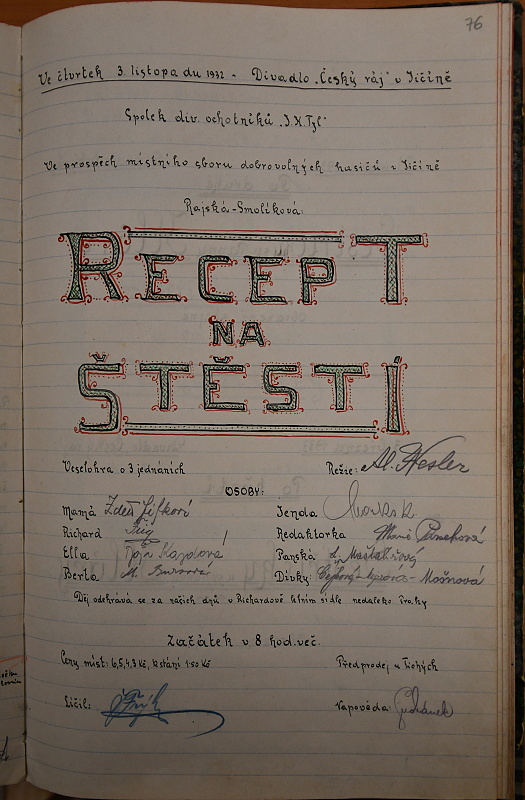 76
Ve čtvrtek 3. listopadu 1932 - Divadlo „Český ráj" v Jičíně
Spolek div. ochotníků „J.K.Tyl"
Ve prospěch místního sboru dobrovolných hasičů v Jičíně
Rajská-Smolíková:
RECEPT
NA
ŠTĚSTÍ
Veselohra o 3 jednáních
Režie: Al. Hesler
OSOBY:
Mamá
Jenda
Richard
Redaktorka Marie
Ella Kazdová
Panská
Berta
Dívky: Mošnová
Děj odehrává se za našich dnů v Richardově letním sídle nedaleko Prahy
Začátek v 8 hod. več.
Ceny míst: 6,5,4,3 Kč, k stání 1·50 Kč
Předprodej u Tichých
Líčil:
Napověda: